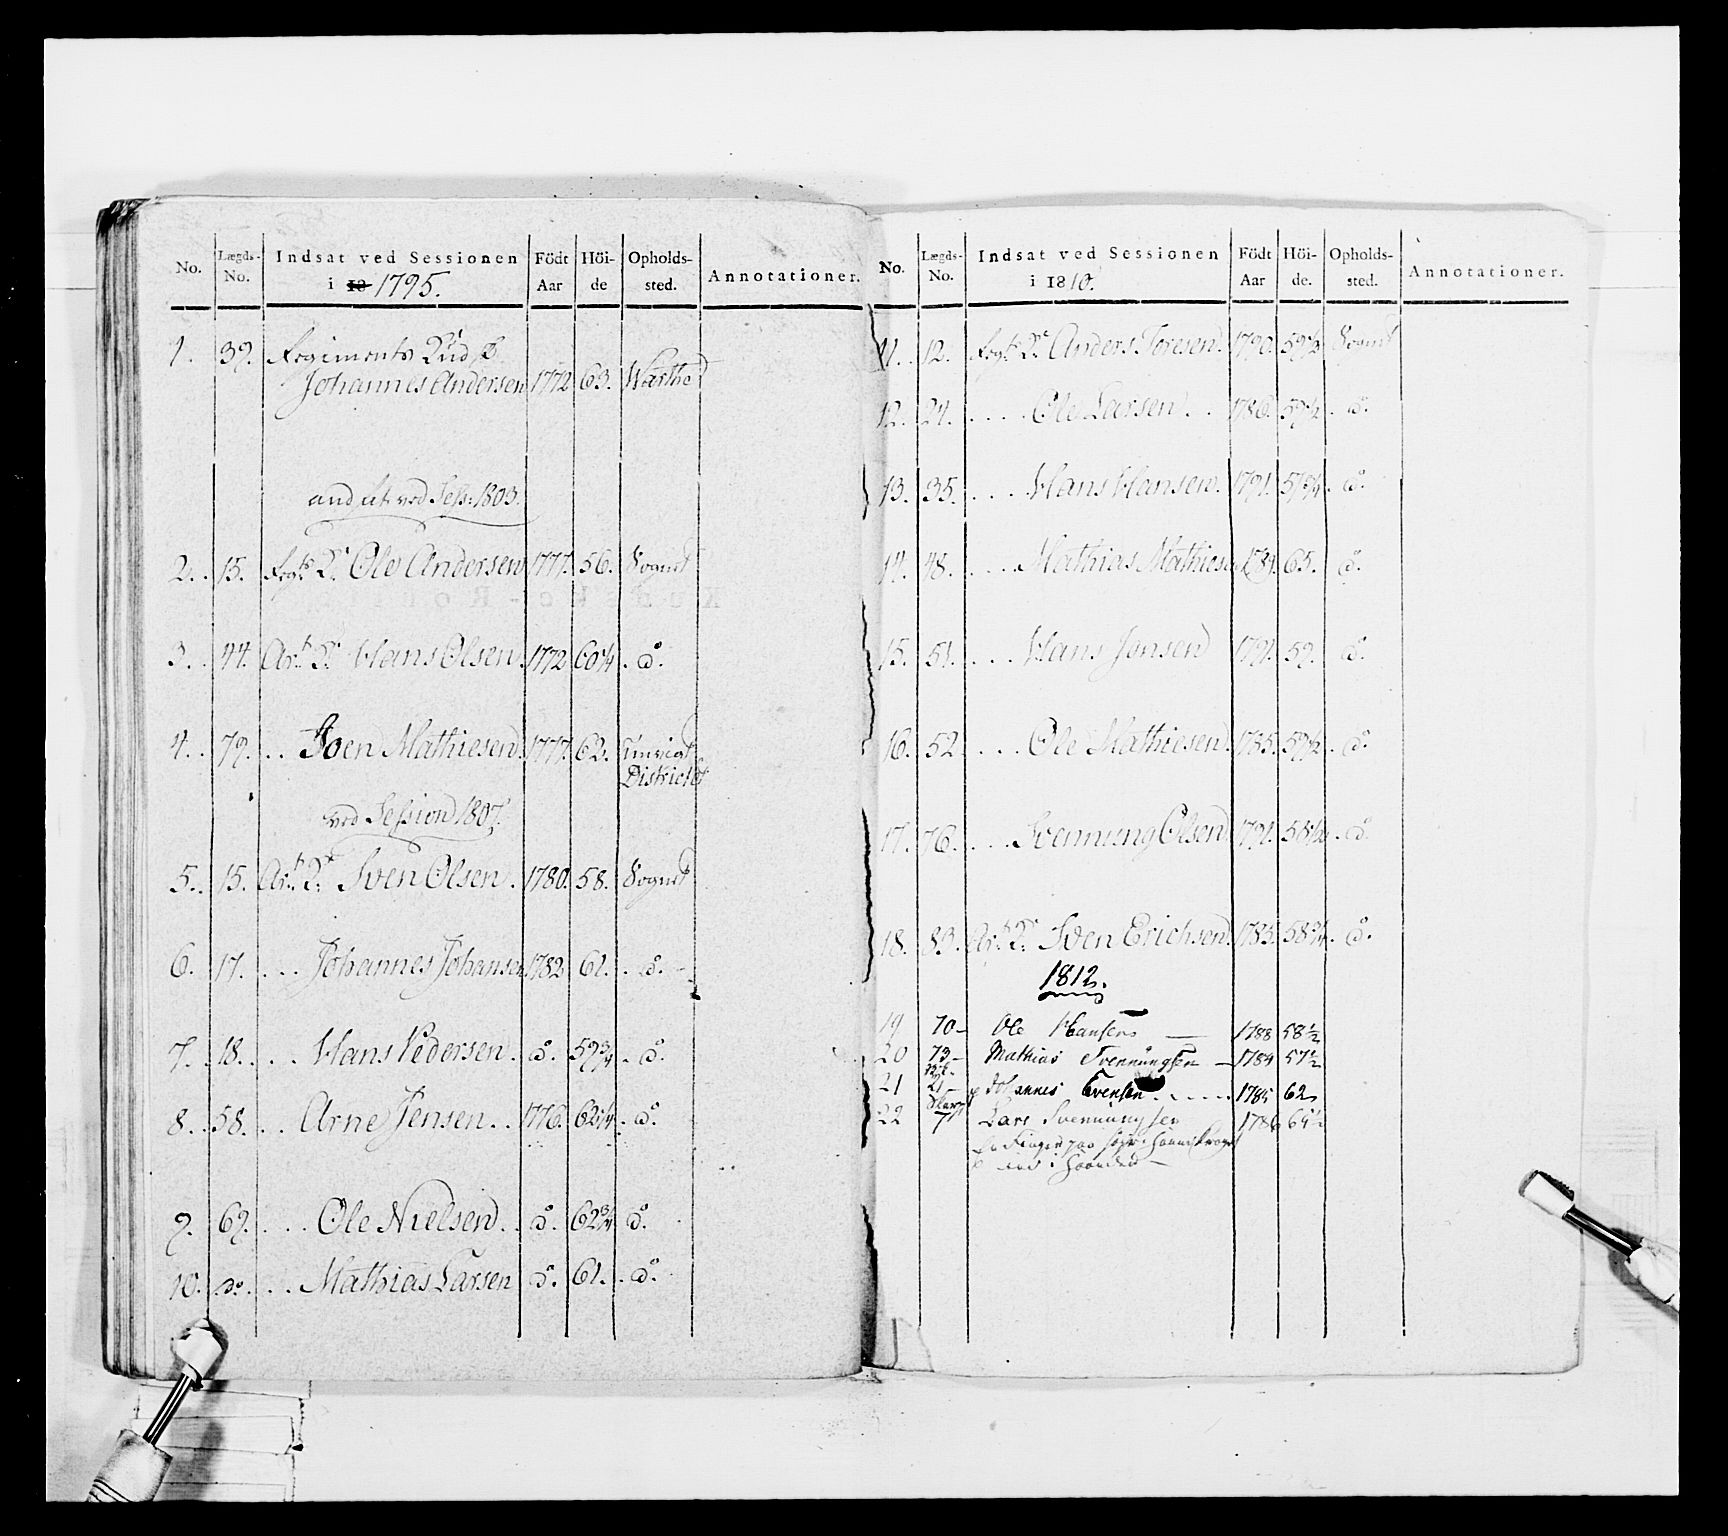 No. Lægds- No. Indsat ved Sessionen i 18 1795. Födt Aar Höi- de Opholds- sted. Annotationer.
1. 39. Regiments
Johannes Andersen 1772 63.
ved Sess: 1803.
2. 15. Regts Ole Andersen 1777. 56. Sognet
3. 44. Art. Hans Olsen. 1772 60 1/4 do.
4. 79. Joen Mathiesen 1777. 62.
Districtet
ved Session 1807.
5. 15. Art. Sven Olsen. 1780. 58. Sognet
6. 17. Johannes Johansen 1782 61. do.
7. 18. Hans Pedersen. do. 59 3/4 do.
8. 58. Arne Jensen. 1776. 62 1/4 do.
9. 69. Ole Nielsen. do. 62 3/4 do.
10. do. Mathias Larsen do. 61. do.
No. Lægds- No. Indsat ved Sessionen i 1810. Födt Aar Höi- de. Opholds- sted. Annotationer.
11. 12. Regts Anders Toresen. 1790. 59 1/2 Sognet
12. 24. Ole Larsen. 1786. 59 1/2 do.
13. 35. Hans Hansen. 1791. 51 3/4 do.
14. 48. Mathias Mathiesen 65. do.
15. 51. Hans Jensen 1791. 59. do.
16. 52 Ole Mathiesen. 1785. 59 1/2 do.
17. 76. Svennung Olsen 1791. 58 1/2 do.
18. 83. Art. Sven Erichsen. 1785. 58 3/4 do.
1812.
19 70 - Ole Hansen 1788 58 1/2
20 73 - Mathias Svennungsen - 1789 57 1/2
21 21 - Johannes Evensen 1785 62
22 7 Lars Svennungsen 1786 61 1/2